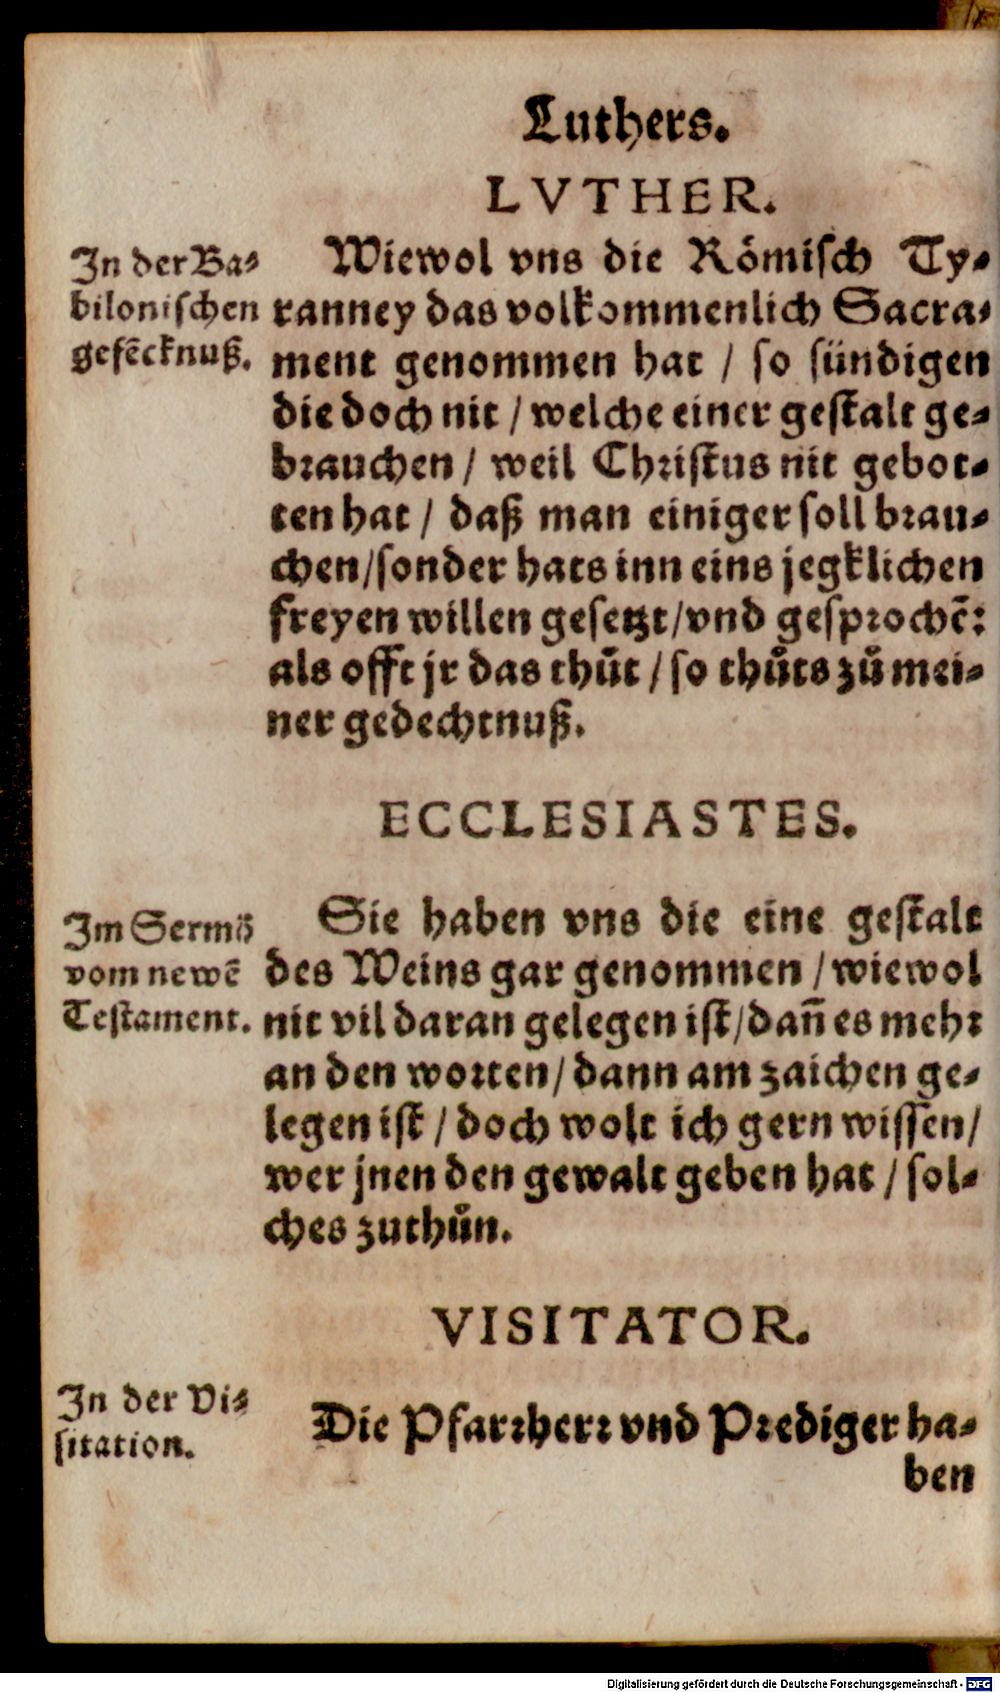 Luthers.
LVTHER.
In der Ba⸗
bilonischen
gefēcknuß.
Wiewol vns die Römisch Ty⸗
ranney das volkommenlich Sacra⸗
ment genommen hat / so sündigen
die doch nit / welche einer gestalt ge⸗
brauchen / weil Christus nit gebot⸗
ten hat / daß man einiger soll brau⸗
chen/sonder hats inn eins jegklichen
freyen willen gesetzt/vnd gesprochē:
als offt jr das thůt / so thůts zů mei⸗
ner gedechtnuß.
ECCLESIASTES.
Im Sermō
vom newē
Testament.
Sie haben vns die eine gestalt
des Weins gar genommen / wiewol
nit vil daran gelegen ist/dañ es mehr
an den worten/ dann am zaichen ge⸗
legen ist / doch wolt ich gern wissen/
wer jnen den gewalt geben hat / sol⸗
ches zuthůn.
VISITATOR.
In der Vi⸗
sitation.
Die Pfarrherr vnd Prediger ha⸗
ben
Digitalisierung gefördert durch die Deutsche Forschungsgemeinschaft - DFG